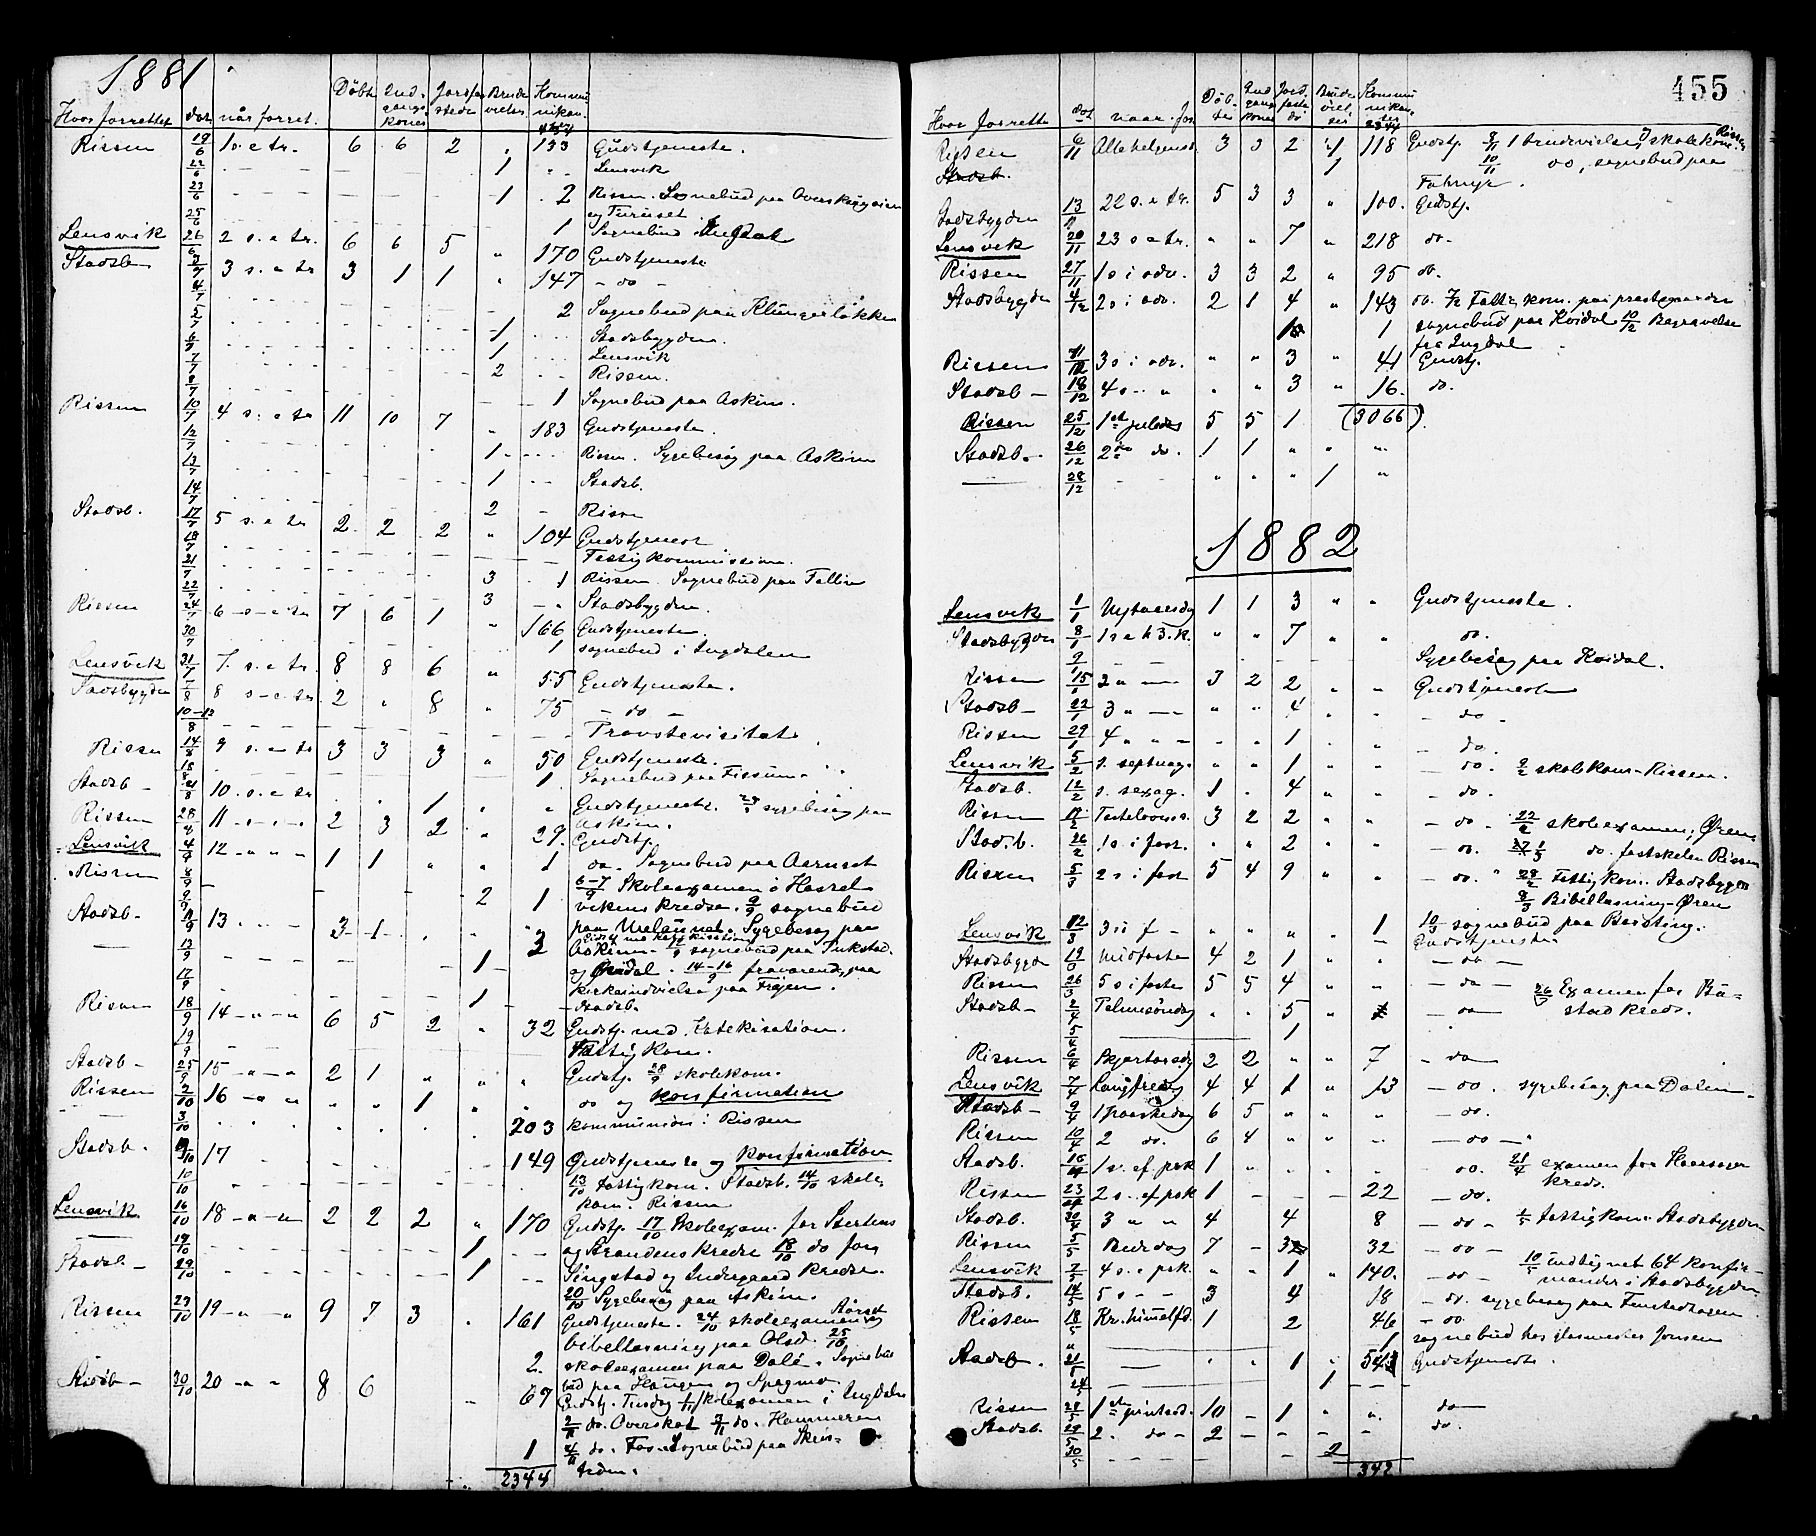 1881
Hvor forrettet dat. når forret. Døbte Ind-gangs koner Jordfæstede Brude vielser Kommunikan.
Rissen 19/6 1 s. e tr. 6 6 2 " 133 Gudstjeneste.
22/6 1 Lensvik
23/6 1 2 Rissen. Sognebud paa Overskuggeien
og Turuset
25/6 1 Sognebud Ingdal
Lensvik 26/6 2 s. e tr. 6 6 5 " 170 Gudstjeneste
Stadsb 3/7 3 s. e tr 3 1 1 " 147 - do -
4/7 2 Sognebud paa Klungerløkken
5/7 1 Stadsbygden.
6/7 1 Lensvik
7/7 2 Rissen.
8/7 1 Sognebud paa Askim.
Rissen 10/7 4 s. e tr 11 10 7 " 183 Gudstjeneste.
12/7 1 Rissen. Sygebesøg paa Askim
13/7 1 Stadsb.
14/7 2 Rissen
Stadsb. 17/7 5 s. e tr 2 2 2 " 104 Gudstjenest
18/7 Fattigkommission.
21/7 3 1 Rissen. Sognebud paa Fallin
22/7 3 Stadsbygden.
Rissen 24/7 6 s e tr 7 6 1 " 166 Gudstjeneste
30/7 1 sognebud i Ingdalen
Lensvik 31/7 7. s. e tr. 8 8 6 " 55 Gudstjeneste.
Stadsbygden 7/8 8 s e tr 2 " 8 " 75 - do -
10-12/8 Provstevisitats
Rissen 14/8 9 s. e tr 3 3 3 " 50 Gudstjeneste.
18/8 1 Sognebud paa Fissum
Stadsb - 21/8 10. s. e tr 1 " Gudstjeneste. sygebesøg paa
Askim.
Rissen 28/8 11 2 3 2 " 29. Gudstj.
Lensvik 4/9 12 1 1 " " 1 do. Sognebud paa Aarnset
Rissen 8/9 6-7/9 Skoleexamen i Hassel
9/9 2 1 vikens kredse. 9/9 sognebud
Stadsb- 11/9 13 3 1 paa Uvelaunet. Sygebesøg paa
13/9 3 Askim - sognebud paa Tukstad
1 og Opidal. 14-16/9 fraværende paa
17/9 kirkeindvielse paa Frøjen.
1 Stadsb.
Rissen 18/9 14 6 5 2 " 32 Gudstj. med Katekisation.
19/9 Fattigkom.
Stadsb- 25/9 15 2 1 " " " Gudstj. 28/9 skolekom.
Rissen 2/10 16 " " 1 " do og Konfirmation
3/10 203 kommunion i Rissen
Stadsb. 9/10 17 149 Gudstjeneste og Konfirmation
10/10 13/10 fattigkom. Stadsb. 14/10 skole
kom. Rissen
Lensvik 16/10 18 2 2 2 " 170 Gudstj. 17/10 Skoleexam. for Stertens
19/10 1 og Strandens kredse 18/10 do for
Stadsb - 22/10 1 Singstad og Indergaard kredse.
20/10 Sygebesøg paa Askim.
Rissen 23/10 19 9 7 3 " 161 Gudstjeneste. 24/10 skoleexamen og
bibellæsning paa Olsd. 25/10
2. skoleexamen paa Dale. Sognebud
Stadsb- 30/10 20 8 6 bud paa Haugen og Spagmo
67 Gudstj. Tirsdag 1/11 skoleexamen i Ingdalen
2/11 do. Overskot 3/11 do. Hammeren
1 4/11 do. Foss Sognebud paa Skris-
trøen.
2344
455
Hvor forrette dat naar for. Døbte Ind gang koner Jord fæste de Brude viel ser Kommunikanter
2344
Rissen 6/11 Allehelgensd. 3 3 2 1 118 Gudstj. 8/11 1 brudevielse, skolekom. Rissen
Stadsb. 1 10/11 do, sognebud paa
Fahmyr.
Stadsbygden 13/11 22 s. e tr. 5 3 3 " 100. Gudstj.
Lensvik 20/11 23 s e tr. " " 7 " 218 do.
Rissen 27/11 1 s i adv. 3 3 2 " 95 do.
Stadsbygden 4/12 2 s i adv. 2 1 4 " 143 do. Fattigkom. paa præstegaarden
1 sognebud paa Hvidal 10/12 Begravelse
fra Ingdal
Rissen 11/12 3 s i adv. " " 3 " 41 Gudstj.
Stadsb - 18/12 4 s " " 3 " 16. do.
Rissen 25/12 1st juledag 5 5 1 (3066)
Stadsb. 26/12 2den do. 1 1 " " "
28/12 " " " 1 "
1882
Lensvik 1/1 Nytaarsdag 1 1 3 " " Gudstjeneste.
Stadsbygden 8/1 1 s e h 3. k. " " 7 " " do.
9/1 Sygebesøg paa Hvidal.
Rissen 15/1 2 " 3 2 2 " " Gudstjeneste
Stadsb- 22/1 3 " " " 4 - do -
Rissen 29/1 4 " 1 - do.
Lensvik 5/2 s. septuag. " " 1 " " - do. 9/2 skolekom. Rissen.
Stadsb. 12/2 s. sexag. 1 " 4 " " - do.
Rissen 19/2 Fastelavns s. 3 2 2 " " - do. 22/2 skoleexamen, Øren
Stadsb. 26/2 1 s. i fast. " " 2 " " - do. 1/3 do. fastskolen Rissen
Rissen 5/3 2 s i fast 5 4 9 " " - do. 28/2 Fattigkom. Stadsbygden
8/3 Bibellæsning - Øren
Lensvik 12/3 3 s i f - " " " " 1 10/3 sognebud paa Barsting.
Gudstjeneste.
Stadsbygden 19/3 Midfaste 4 2 1 " " - do -
Rissen 26/3 5 s i faste 5 5 4 " " - do - Examen for Bu-
Stadsb- 2/4 Palmesøndag " " 5 " - do - stad kreds.
5/4 1
Rissen 6/4 Skjærtorsdg 2 2 " " 7 - do -
Lensvik 7/4 Langfredag 4 4 1 " 13 - do. sygebesøg paa Dalen.
Stadsb- 9/4 1 paaskedag 6 5 " " " - do.
Rissen 10/4 2 do. 6 4 " " " - do -
Stadsb. 16/4 1 s. ef. psk 1 " - do. 21/4 examen for Haarsaker
kreds.
Rissen 23/4 2 s. ef psk 1 - - - 22 - do.
Stadsb. 30/4 3 " " 4 4 8 - do - 1/5 fattigkom. Stadsbygden
Rissen 5/5 Bededag 7 - 3 32 - do -
Lensvik 7/5 4 s. e psk. " " 1 " 140. - do - 10/5 indtegnet 64 konfir-
mander i Stadsbygden
Stadsb. 14/5 5 s - - 3 4 18 - do. sygebesøg paa Fenstadhagen
Rissen 18/5 Kr. himmelfd. 1 2 46 - do.
1 sognebud hos glasmester Jonsen
Stadsb. 21/5 " " 1 " 54 Gudstjeneste.
24/5 1
Rissen 28/5 1st pintsed. 10 - 1 " " do
Stadsb. 29/5 2. do - 2 - - - do.
30/5 2
342